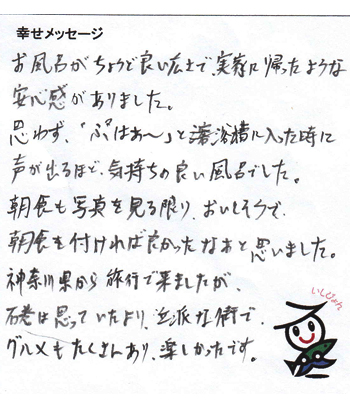 幸せメッセージ
お風呂がちょうど良い広さで、実家に帰ったような
安心感がありました。
思わず、「ぷはぁ〜」と湯浴槽に入った時に
声が出るほど、気持ちの良い風呂でした。
朝食も写真を見る限り、おいしそうで、
朝食を付ければ良かったなぁと思いました。
神奈川県から旅行で来ましたが、
石巻は思っていたより、立派な街で、
グルメもたくさんあり、楽しかったです。
いしぴょん